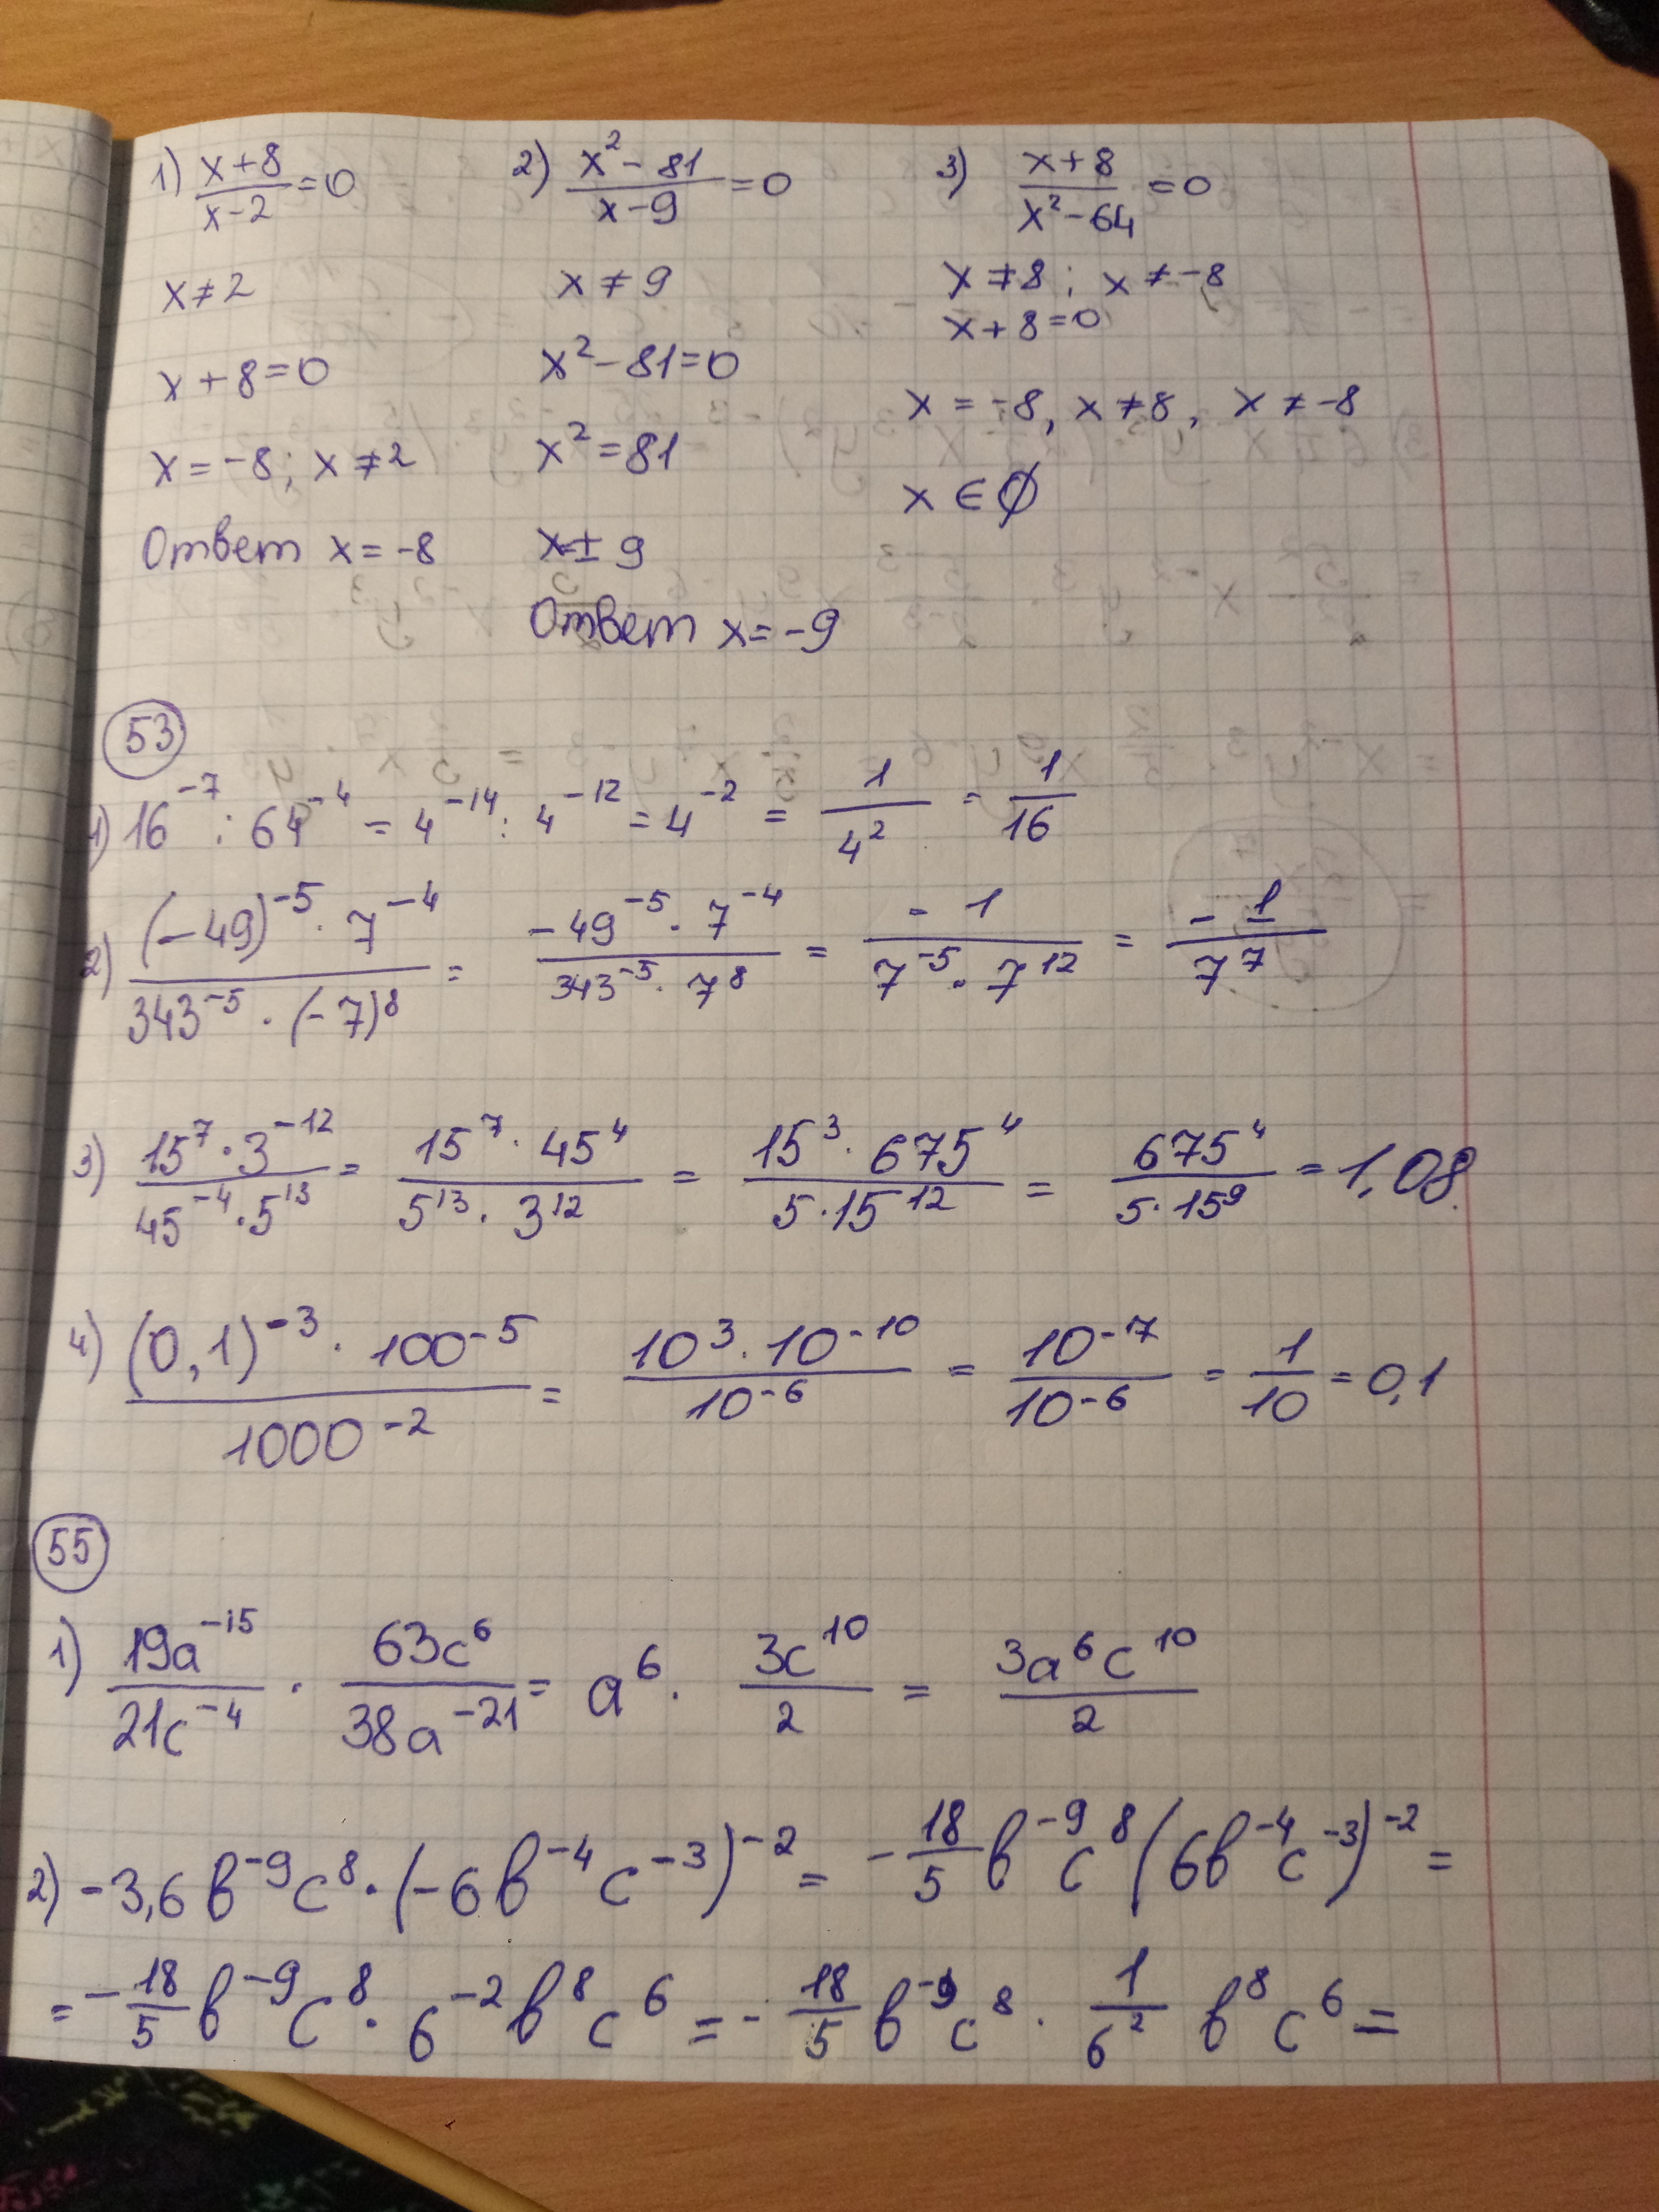 1) (x+8)/(x-2) = 0
x ≠ 2
x + 8 = 0
x = -8; x ≠ 2
Ответ x = -8
2) (x² - 81)/(x - 9) = 0
x ≠ 9
x² - 81 = 0
x² = 81
x = ± 9
Ответ x = -9
3) (x + 8)/(x² - 64) = 0
x ≠ 8; x ≠ -8
x + 8 = 0
x = -8, x ≠ 8, x ≠ -8
x ∈ ∅
53
1) 16⁻⁷ : 64⁻⁴ = 4⁻¹⁴ : 4⁻¹² = 4⁻² = 1/4² = 1/16
2) ((-49)⁻⁵ · 7⁻⁴)/(343⁻⁵ · (-7)⁸) = (-49⁻⁵ · 7⁻⁴)/(343⁻⁵ · 7⁸) = (-1)/(7⁻⁵ · 7¹²) = (-1)/7⁷
3) (15⁷ · 3⁻¹²)/(45⁻⁴ · 5¹³) = (15⁷ · 45⁴)/(5¹³ · 3¹²) = (15³ · 675⁴)/(5 · 15¹²) = 675⁴/(5 · 15⁹) = 1,08
4) ((0,1)⁻³ · 100⁻⁵)/1000⁻² = (10³ · 10⁻¹⁰)/10⁻⁶ = 10⁻¹⁷/10⁻⁶ = 1/10 = 0,1
55
1) 19a⁻¹⁵/21c⁻⁴ · 63c⁶/38a⁻²¹ = a⁶ · 3c¹⁰/2 = 3a⁶c¹⁰/2
2) -3,6 b⁻⁹c⁸ · (-6b⁻⁴c⁻³)⁻² = -18/5 b⁻⁹c⁸ (6b⁻⁴c⁻³)⁻² =
= -18/5 b⁻⁹c⁸ · 6⁻²b⁸c⁶ = -18/5 b⁻⁹c⁸ · 1/6² b⁸c⁶ =